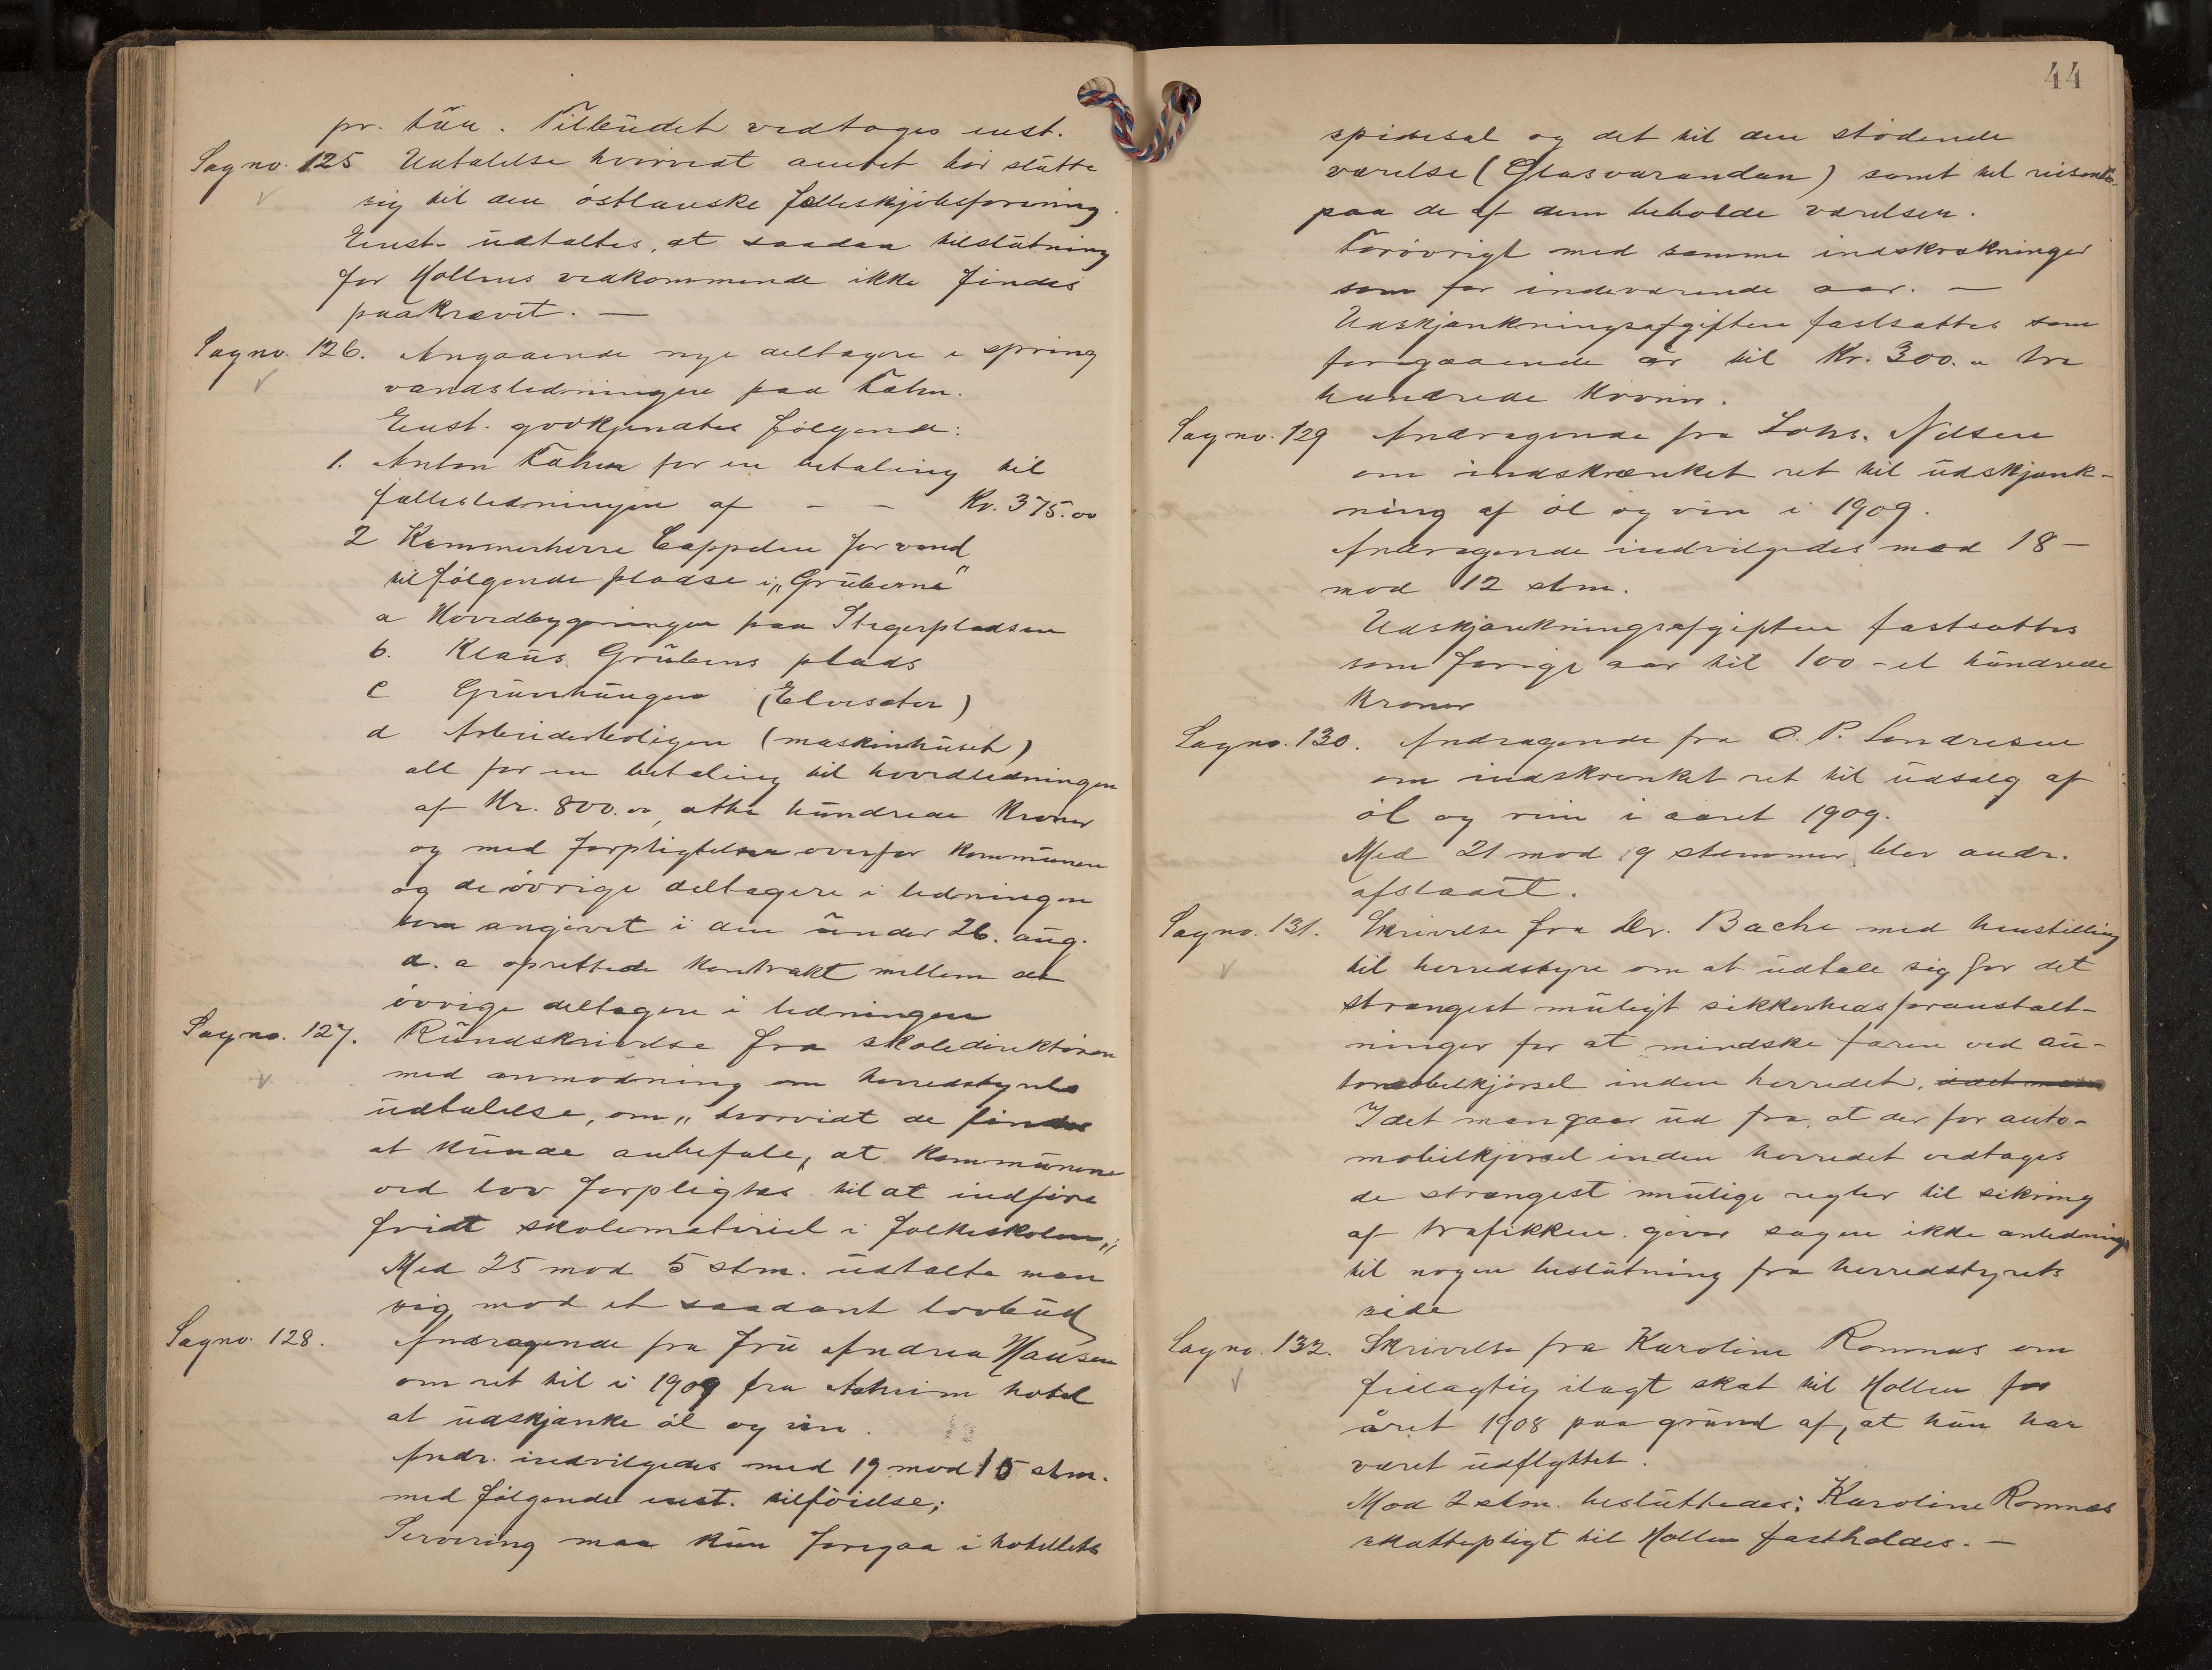 pr. tün. Tilbüdet vedtoges enst.
Sag no. 125 Uatalelse hvorvidt amtet bör slutte
sig til den östlanske fælleskjöbsforening.
Enst. üdtaltes, at saadan tilslütning
for Hollens vedkommende ikke findes
paakrævet. —
Sag no. 126. Angaaende nye deltagere i spring
vandsledningen paa Tahn.
Enst. godkjendtes følgende:
1. Anton Tahn for en betaling til
fællesledningen af - - Kr. 375.00
2 Kammerherre Cappelen for vand
til følgende pladse i „Grüberne"
a Hovedbygningen paa Stegerpladsen
b. Klaus Grübens plads
c Grünhaugen (Elvesæter)
d Arbeiderboligen (maskinhüset)
alt for en betaling til hovedledningen
af Kr. 800.00, otte hündrede Kroner
og med forpligtelser overfor kommünen
og de övrige deltagere i ledningen
som angivet i den ünder 26. aüg.
d. a oprettede kontrakt mellem de
övrige deltagere i ledningen
Sag no. 127. Ründskrivelse fra skoledirektören
med anmodning om herredstyrets
üdtalelse, om „hvorvidt de finder
at künde anbefale, at kommünerne
ved lov forpligtes til at indföre
fridt skolemateriel i folkeskolen";
Med 25 mod 5 stm. üdtalte man
sig mod et saadant lovbüd
Sag no. 128. Andragende fra frü Andrea Hansen
om ret til i 1909 fra Asheim hotel
at üdskjænke öl og vin.
Andr. indvilgedes med 19 mod 15 stm.
med følgende enst. tilföielse;
Servering maa kün foregaa i hotellets
44
spisesal og det til den stödende
værelse (Glasvarandan) samt til reisende
paa de af dem beholdte værelser.
Forövrigt med samme indskrækninger
som for indeværende aar. —
Udskjænkningsafgiften fastsattes som
foregaaende år til Kr. 300.00 tre
hundrede Kroner.
Sag no. 129 Andragende fra Johs. Nilsen
om indskrænket ret til üdskjænk-
ning af öl og vin i 1909.
Andragende indvilgedes med 18 —
mod 12 stm.
Udskjænkningsafgiften fastsattes
som forrige aar til 100 - et hündrede
Kroner
Sag no. 130. Andragende fra O. P. Sondresen
om indskrænket ret til üdsalg af
öl og vin i aaret 1909.
Med 21 mod 9 stemmer blev andr.
afslaaet.
Sag no. 131. Skrivelse fra Dr. Bache med henstilling
til herredstyre om at üdtale sig for det
strængest müligt sikkerheds foranstalt-
ninger for at mindske faren ved aü-
tomobilkjörsel inden herredet, idet man
Idet man gaar üd fra, at der for auto-
mobilkjörsel inden herredet vedtages
de strængest mülige regler til sikring
af trafikken. giver sagen ikke anledning
til nogen beslütning fra herredstyrets
side
Sag no. 132. Skrivelse fra Karoline Romnæs om
feilagtig ilagt skat til Hollen for
året 1908 paa gründ af, at hün har
været üdflyttet.
Mod 2 stm. beslüttedes: Karoline Romnæs
skattepligt til Hollen fastholdes. —